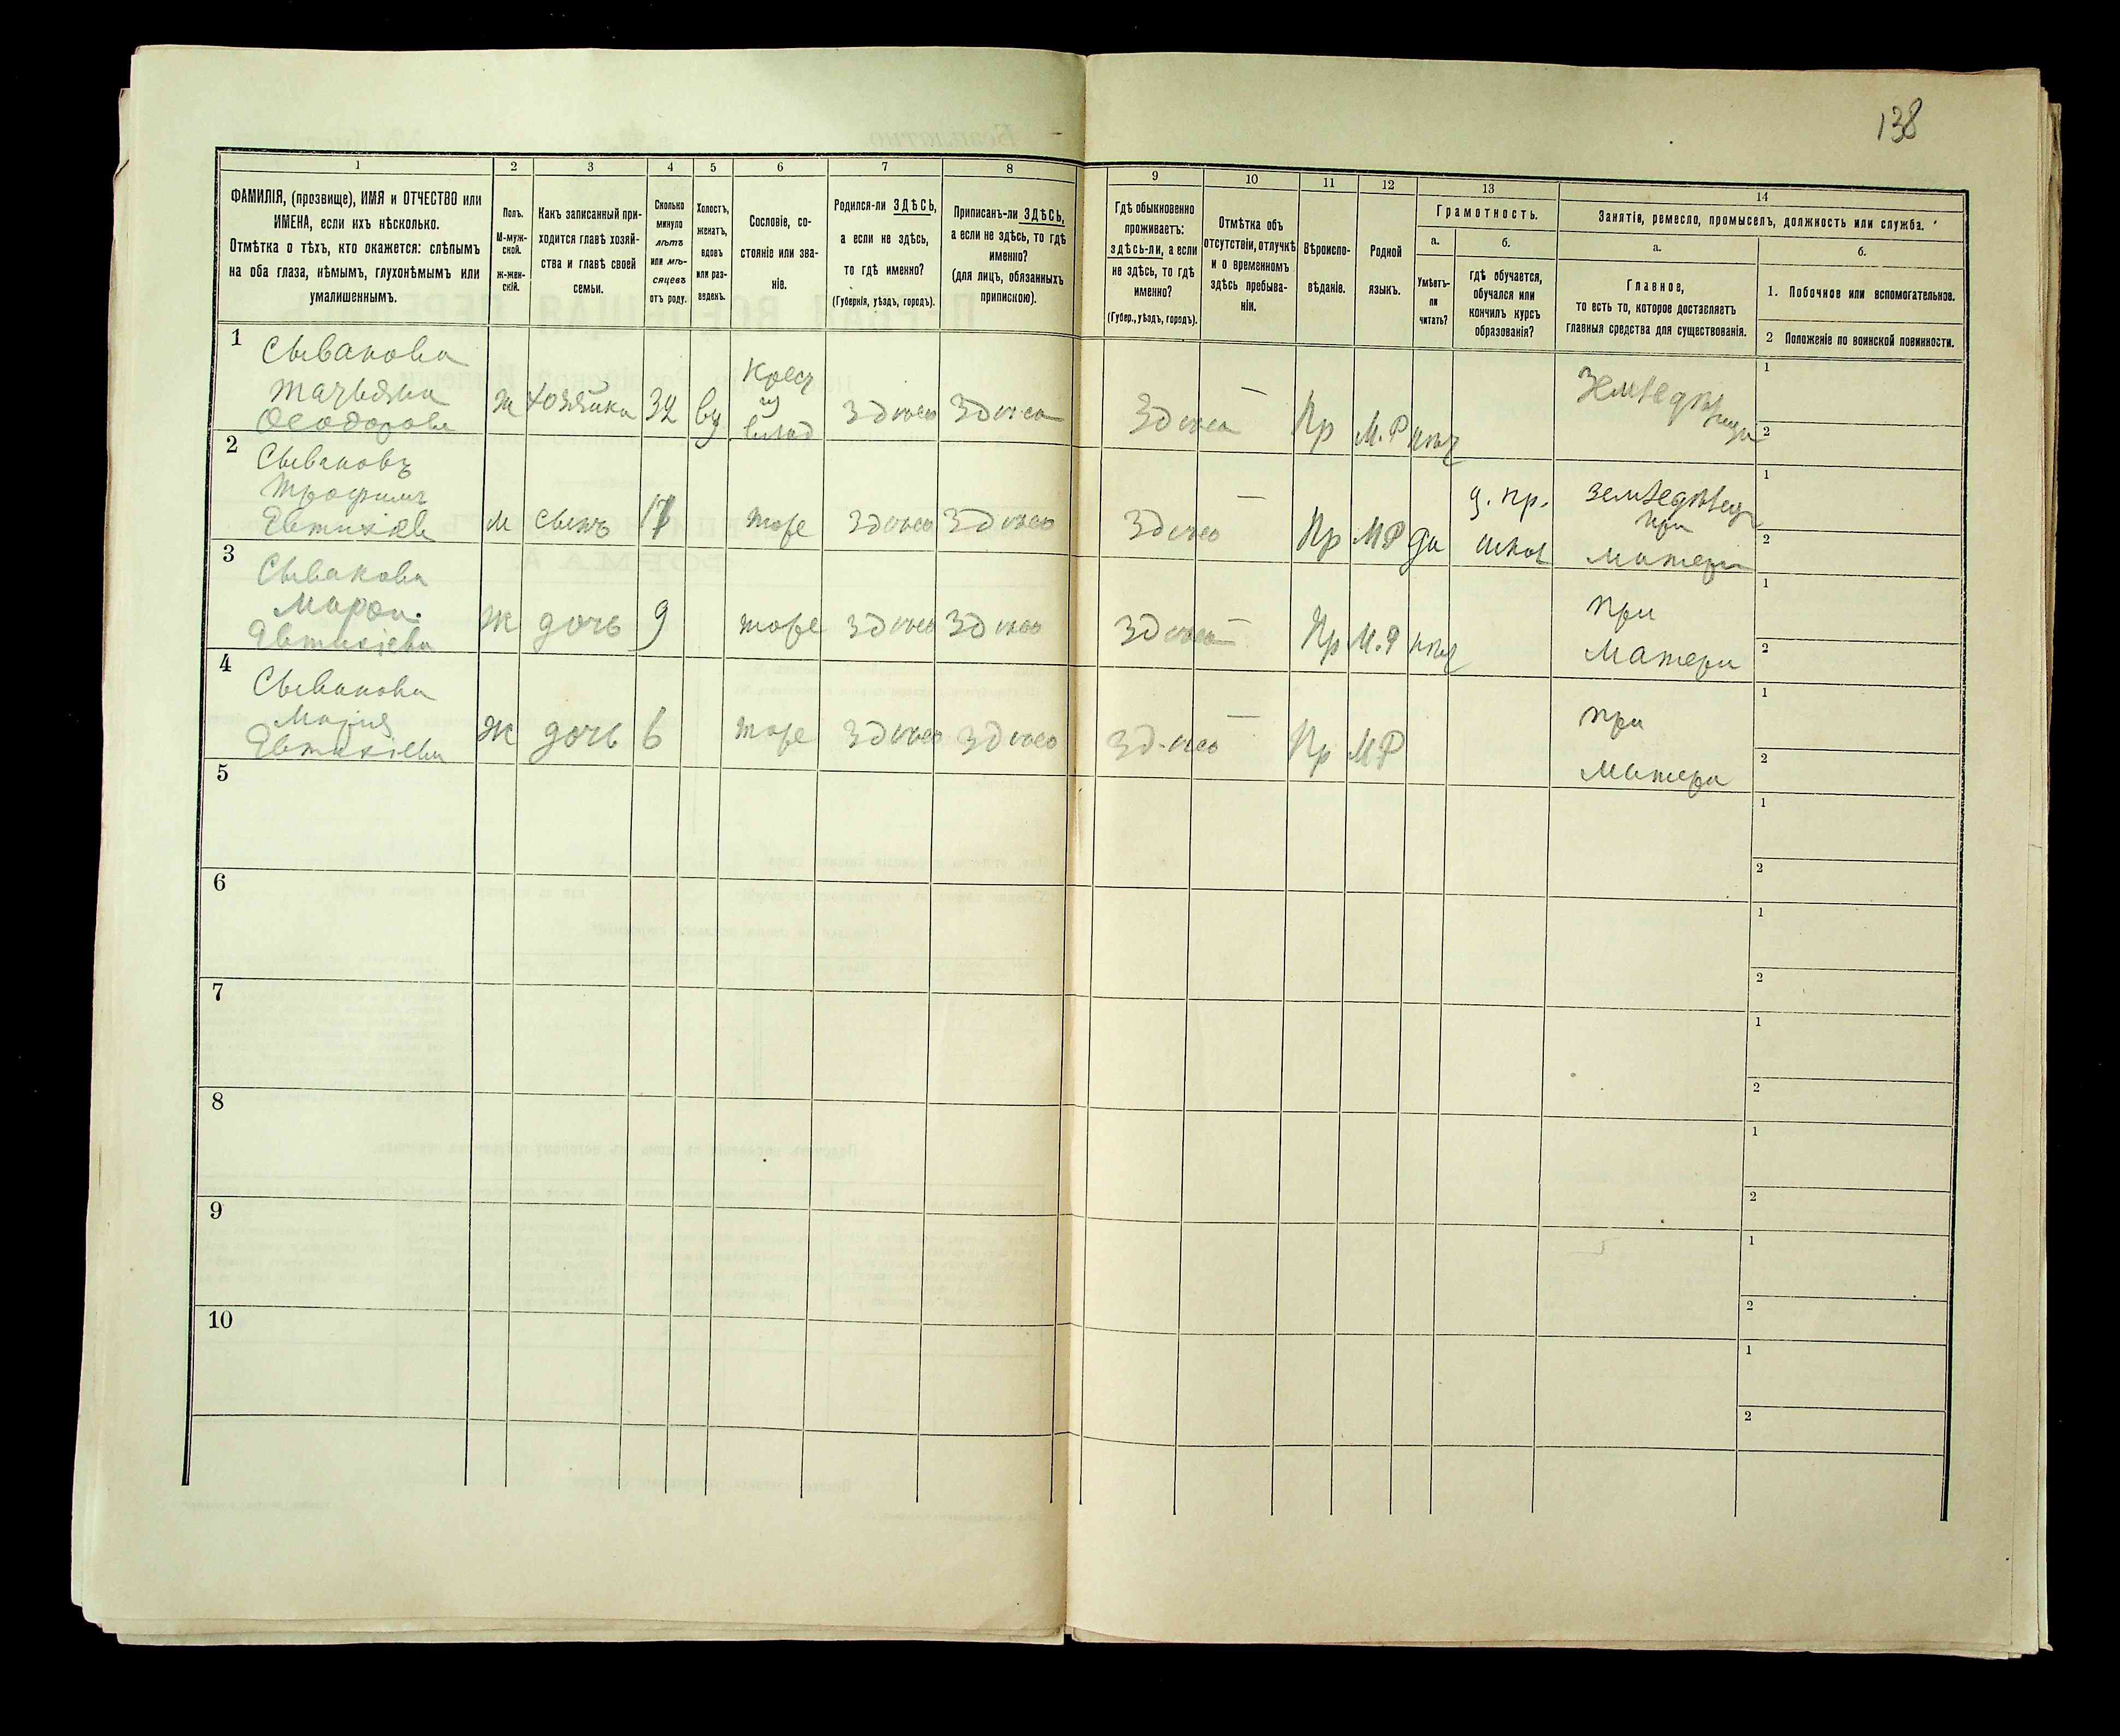 138
1
2
3
4
5
6
7
8
9
10
11
12
13
14
ФАМИЛІЯ, (прозвище), ИМЯ и ОТЧЕСТВО или
ИМЕНА, если ихъ нѣсколько.
Отмѣтка о тѣхъ, кто окажется: слѣпымъ
на оба глаза, нѣмымъ, глухонѣмымъ или
умалишеннымъ.
Полъ.
М-муж-
ской.
ж-жен-
скій.
Какъ записанный при-
ходится главѣ хозяй-
ства и главѣ своей
семьи.
Сколько
минуло
лѣтъ
или мѣ-
сяцевъ
отъ роду.
Холостъ,
женатъ,
вдовъ
или раз-
веденъ.
Сословіе, со-
стояніе или зва-
ніе.
Родился-ли ЗДѢСЬ,
а если не здѣсь,
то гдѣ именно?
(Губернія, уѣздъ, городъ).
Приписанъ-ли ЗДѢСЬ,
а если не здѣсь, то гдѣ
именно?
(для лицъ, обязанныхъ
припискою).
Гдѣ обыкновенно
проживаетъ:
здѣсь-ли, а если
не здѣсь, то гдѣ
именно?
(Губер., уѣздъ, городъ).
Отмѣтка объ
отсутствіи, отлучкѣ
и о временномъ
здѣсь пребыва-
ніи.
Вѣроиспо-
вѣданіе.
Родной
языкъ.
Грамотность.
а.
б.
Умѣетъ-
ли
читать?
гдѣ обучается,
обучался или
кончилъ курсъ
образованія?
Занятіе, ремесло, промыселъ, должность или служба.
а.
б.
Главное,
то есть то, которое доставляетъ
главныя средства для существованія.
1. Побочное или вспомогательное.
2 Положеніе по воинской повинности.
1
Сывакова
Татьяна
Ѳеодорова
ж хозяйка 32 вд
Крест
из
влад
Здѣсь Здѣсь Здѣсь — Пр М.Р нѣт
1
2
2
Сываковъ
Трофимъ
Евтихіев
м сынъ 17 тоже Здѣсь Здѣсь Здѣсь — Пр МР да
ц. пр.
школ
земледѣлец
при
матери
1
2
3
Сывакова
Марфа
Евтихіева
ж дочь 9 тоже Здѣсь Здѣсь Здѣсь — Пр М.Р нѣт
при
матери
1
2
4
Сывакова
Марія
Евтихіева
ж дочь 6 тоже Здѣсь Здѣсь Здѣсь — Пр МР
при
матери
1
2
5
1
2
6
1
2
7
1
2
8
1
2
9
1
2
10
1
2